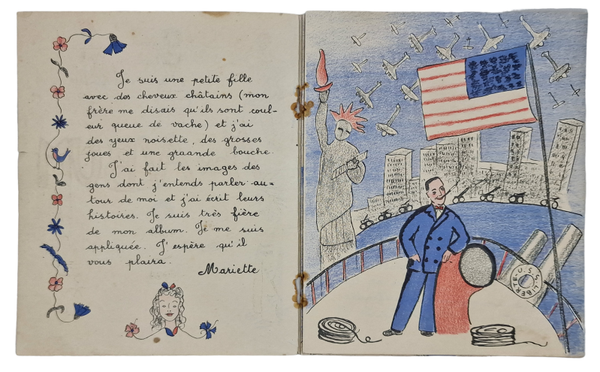 Je suis une petite fille
avec des cheveux châtains (mon
frère me disais qu'ils sont coul-
eur queue de vache) et j'ai
des yeux noisette, des grosses
joues et une graande bouche.
J'ai fait les images des
gens dont j'entends parler au-
tour de moi et j'ai écrit leurs
histoires. Je suis très fière
de mon album. Je me suis
appliquée. J'espère qu'il
vous plaira.
Mariette
U.S.S. LIBERTE